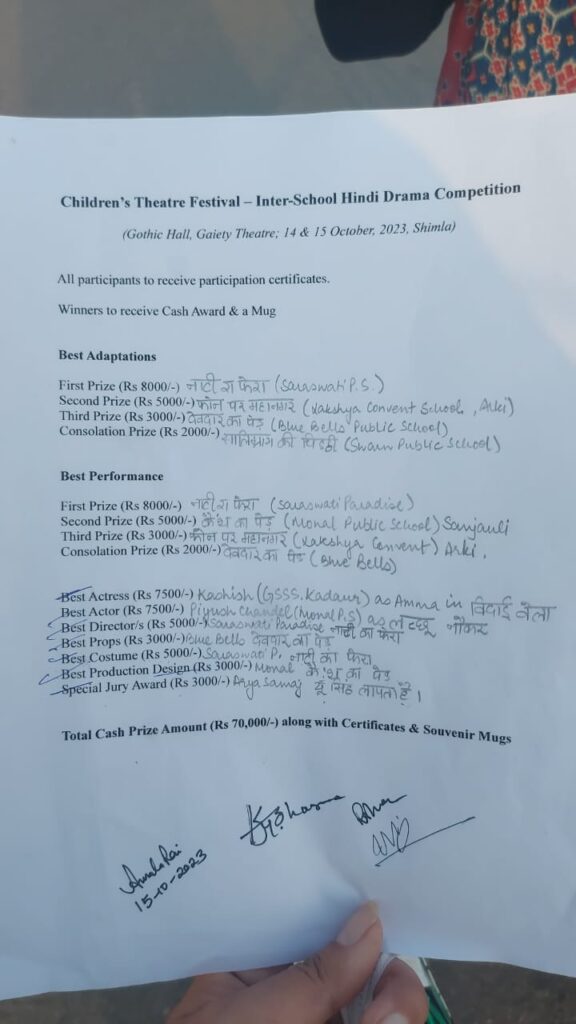 Children's Theatre Festival – Inter-School Hindi Drama Competition
(Gothic Hall, Gaiety Theatre; 14 & 15 October, 2023, Shimla)
All participants to receive participation certificates.
Winners to receive Cash Award & a Mug
Best Adaptations
First Prize (Rs 8000/-) नाटी रा फेरा (Saraswati P.S.)
Second Prize (Rs 5000/-) फोन पर महानगर (Lakshya Convent School, Arki)
Third Prize (Rs 3000/-) देवदार का पेड़ (Blue Bells Public School)
Consolation Prize (Rs 2000/-) की चिट्ठी (Swarn Public School)
Best Performance
First Prize (Rs 8000/-) नाटी रा फेरा (Saraswati Paradise)
Second Prize (Rs 5000/-) कैंथ का पेड़ (Monal Public School) Sanjauli
Third Prize (Rs 3000/-) फोन पर महानगर (Lakshya Convent) Arki,
Consolation Prize (Rs 2000/-) देवदार का पेड़ (Blue Bells)
Best Actress (Rs 7500/-) Kashish (GSSS. Kadaur) as Amma in विदाई वेला
Best Actor (Rs 7500/-) Piyush Chandel (Monal P.S) as नौकर
Best Director/s (Rs 5000/-) Saraswati Paradise नाटी का फेरा
Best Props (Rs 3000/-) Blue Bells देवदार का पेड़
Best Costume (Rs 5000/-) Saraswati P. नाटी का फेरा
Best Production Design (Rs 3000/-) Monal कैंथ का पेड़
Special Jury Award (Rs 3000/-) Arya Samaj सिंह लापता है।
Total Cash Prize Amount (Rs 70,000/-) along with Certificates & Souvenir Mugs
15-10-2023